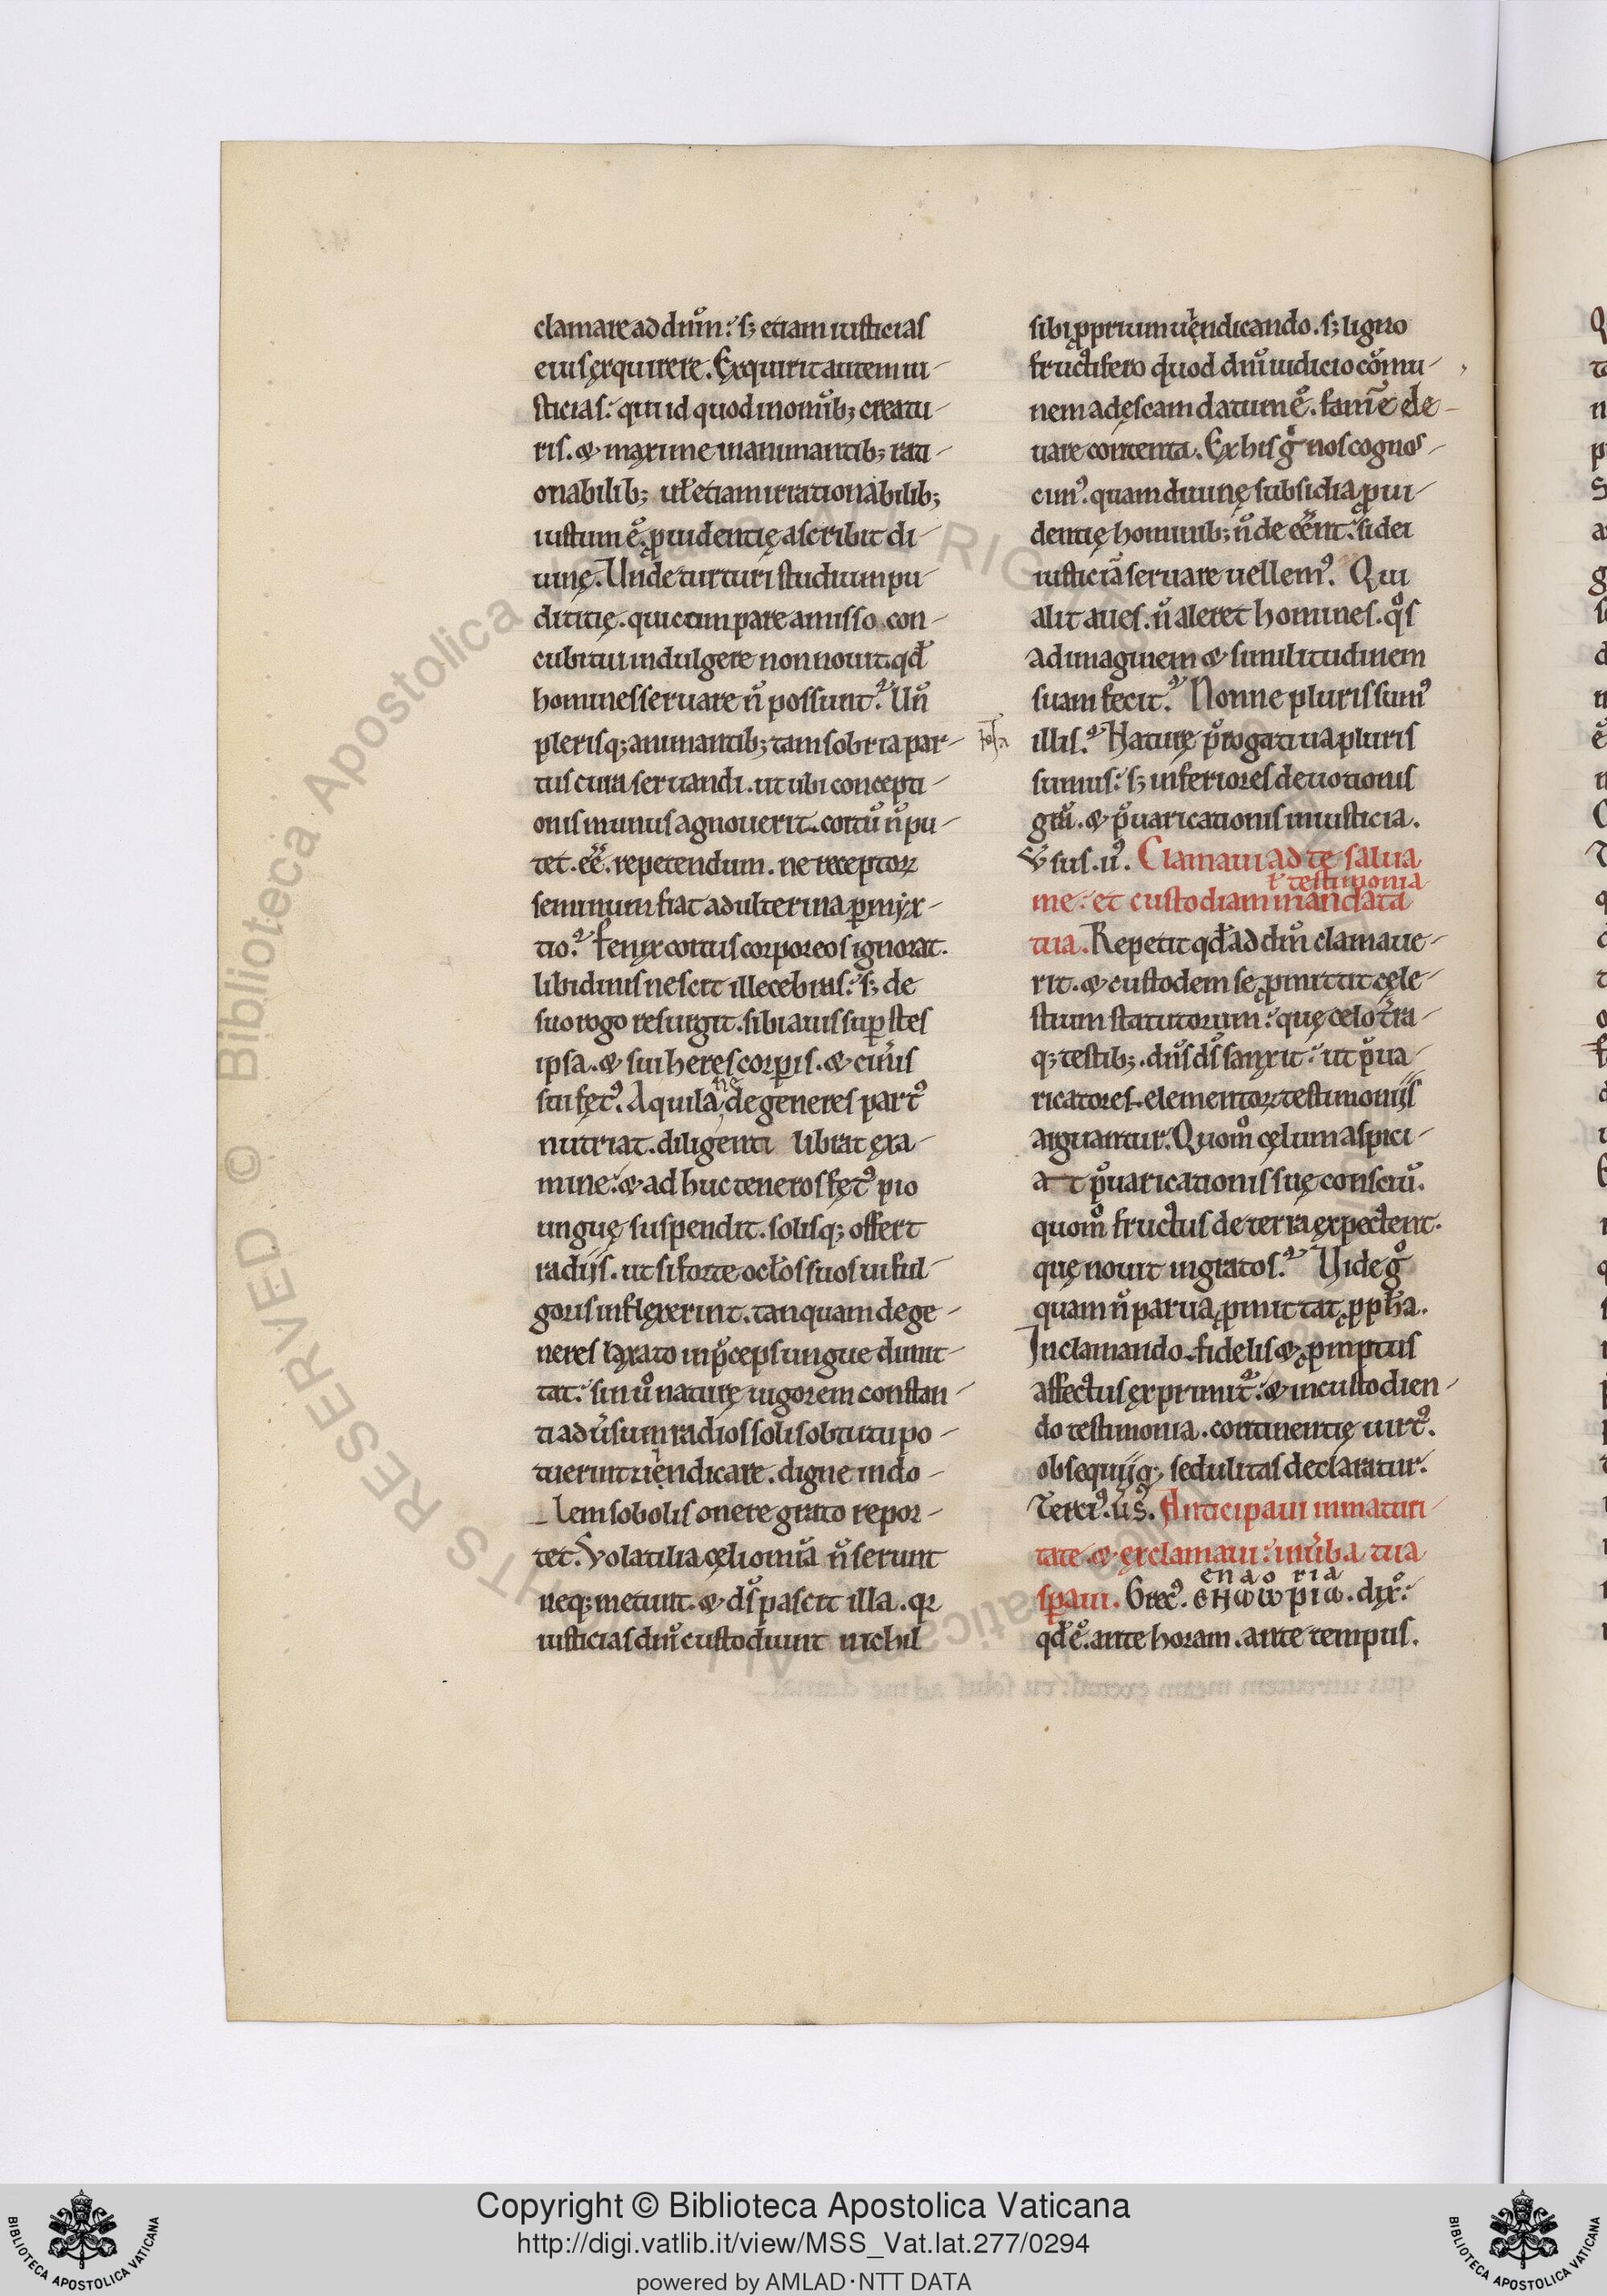 clamare ad dn̄m: sꝫ etiam iusticias
eius ęxquirere. Exquirit autem iu-
sticias: qui id quod in omībꝫ creatu-
ris. & maxime in animantibꝫ rati-
onabilibꝫ uł etiam irrationabilibꝫ
iustum ē. ꝓuidentię ascribit di-
uinę. Unde turturi studium pu-
dititię. qui cum pare amisso con-
cubitui indulgere non nouit. qđ
homines seruare n̄ possunt? Uñ
plerisqꝫ animantibꝫ tam sobria par-
tus cura seruandi. ut ubi concepti-
onis munus agnouerit. coitū n̄ pu-
tet. eē. repetendum. ne receptoꝝ
seminum fiat adulterina ꝑmyx-
tio? fenyx coitus corporeos ignorat.
libidinis nescit illecebras: sꝫ de
suo rogo resurgit. sibi auis suꝑstes
ipsa. & sui heres corꝑis. & cin̄is
sui fęt᷒. Aquila ne degeneres part᷒
nutriat. diligenti librat exa-
mine: & adhuc teneros fęt᷒ pio
ungue suspendit. solisqꝫ offert
radijs. ut si forte ocl̄os suos ui ful-
goris inflexerint. tanquam dege-
neres laxato in p̄ceps ungue dimit-
tat: sin ū naturę uigorem constan-
ti adūsum radios solis obtutu po-
tuerint uendicare. digne indo-
lem sobolis onere grato repor-
tet. Volatilia cęli om̄ia n̄ serunt
neqꝫ metunt. & ds̄ pascit illa. qꝛ
iusticias dn̄i custodiunt nichil
sibi ꝓprium uendicando. sꝫ ligno
fructifero quod dn̄i iudicio cōmu-
nem ad ęscam datum ē. famē ele-
uare contenta. Ex his g̊ nos cognos-
cim᷒. quam diuinę subsidia ꝓui-
dentię hominibꝫ n̄ deeēnt: si dei
iusticiā seruare uellem᷒. Qui
alit aues. n̄ aleret homines. q̊s
ad imaginem & similitudinem
suam fecit? Nonne pluris sum᷒
illis? Naturę p̄rogatiua pluris
sumus: sꝫ inferiores deuotionis
grā. & p̄uaricationis iniusticia.
V̄sus .ii᷒. Clamaui ad te salua
ł testimonia
me: et custodiam mandata
tua. Repetit qđ ad dm̄ clamaue-
rit. & custodem se ꝓmittit cęle-
stium statutorum: quę celo t̄ra-
qꝫ testibꝫ. dn̄s ds̄ sanxit: ut p̄ua-
ricatores elementoꝝ testimoniis
arguantur. Quom̊ cęlum aspici-
at p̄uaricationis suę consciū.
quom̊ fructus de terra expectent.
quę nouit ingratos? Vide g̊
quam n̄ parua ꝓmittat ꝓph̄a.
In clamando fidelis & ꝓmptus
affectus exprimit᷑: & in custodien-
do testimonia. continentię uirt᷒.
obsequijqꝫ sedulitas declaratur.
Terci᷒. u᷒s. Anticipaui inmaturi-
tate. & exclamaui: in ūba tua
enaoria
sꝑaui. Grec᷒. ϵΗωωριω. dix̄:
qđ ē. ante horam. ante tempus.
Copyright © Biblioteca Apostolica Vaticana
http://digi.vatlib.it/view/MSS_Vat.lat.277/0294
powered by AMLAD·NTT DATA
BIBLIOTECA APOSTOLICA VATICANA
BIBLIOTECA APOSTOLICA VATICANA